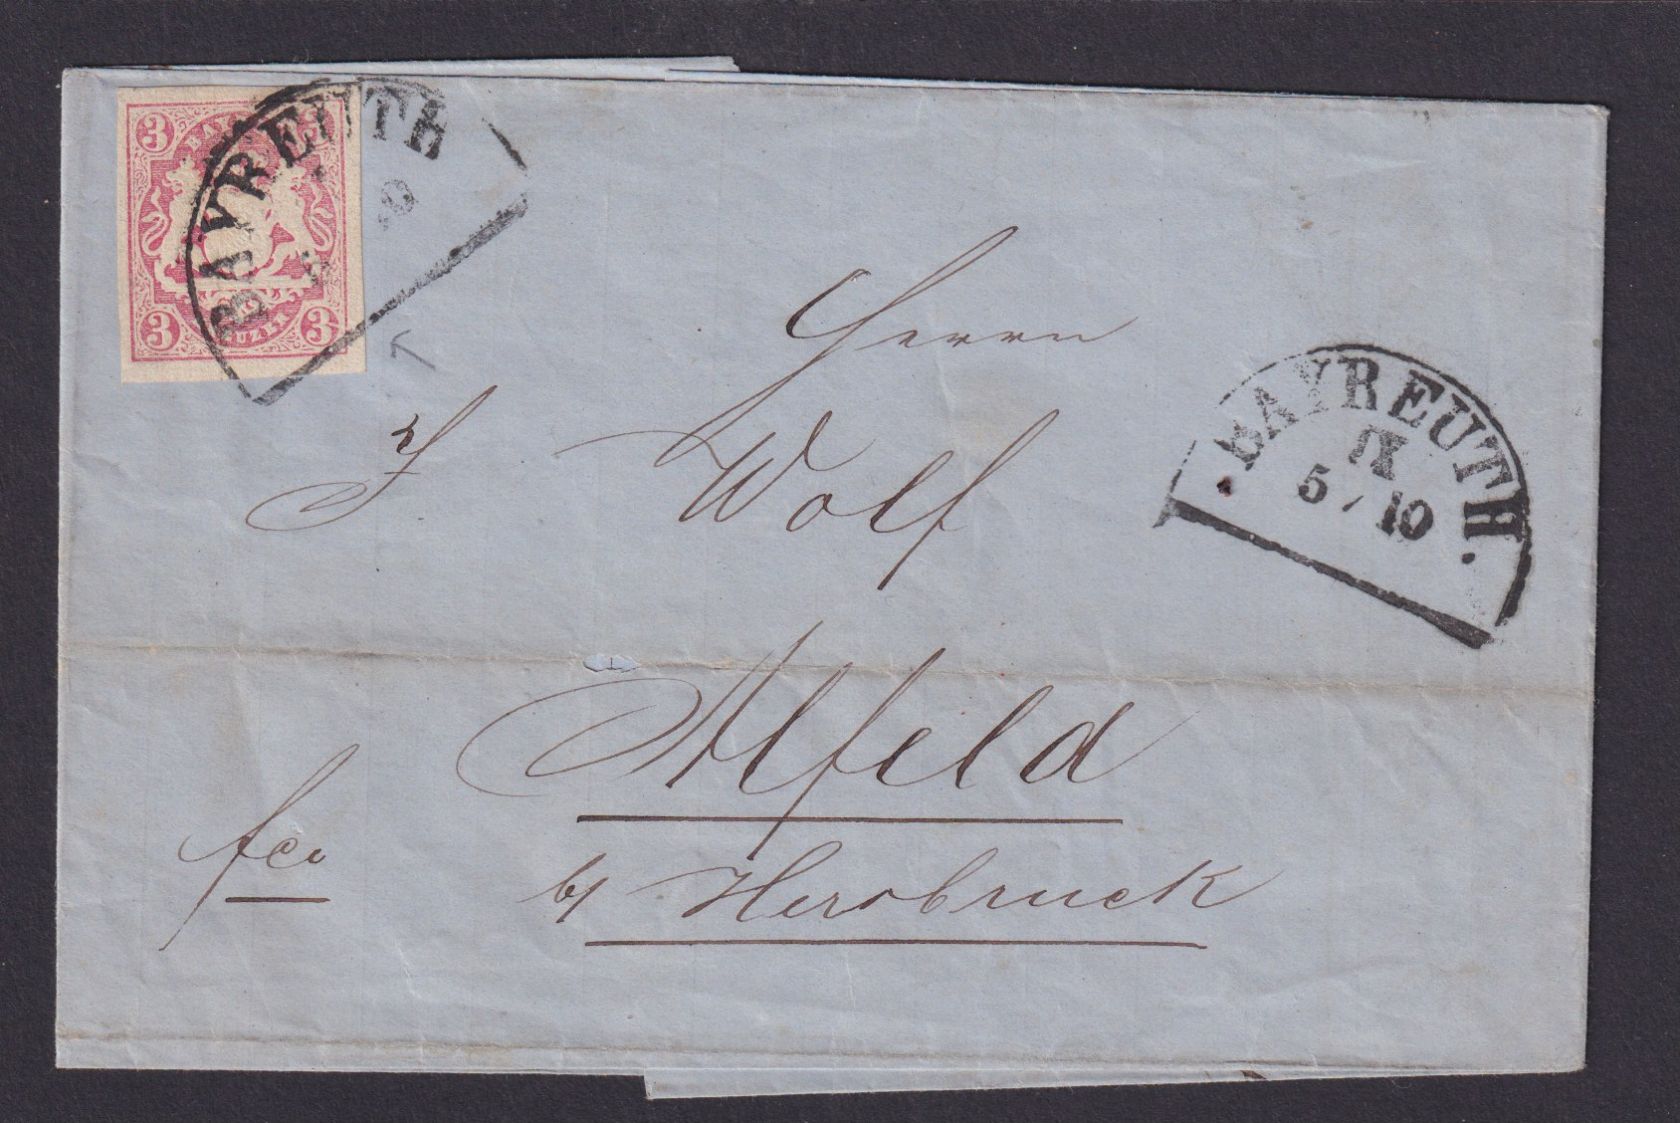 3
3
3
BAYREUTH
BAYREUTH.
IX
5 / 10
Herrn
J Wolf
Alfeld
fco
b/ Hersbruck